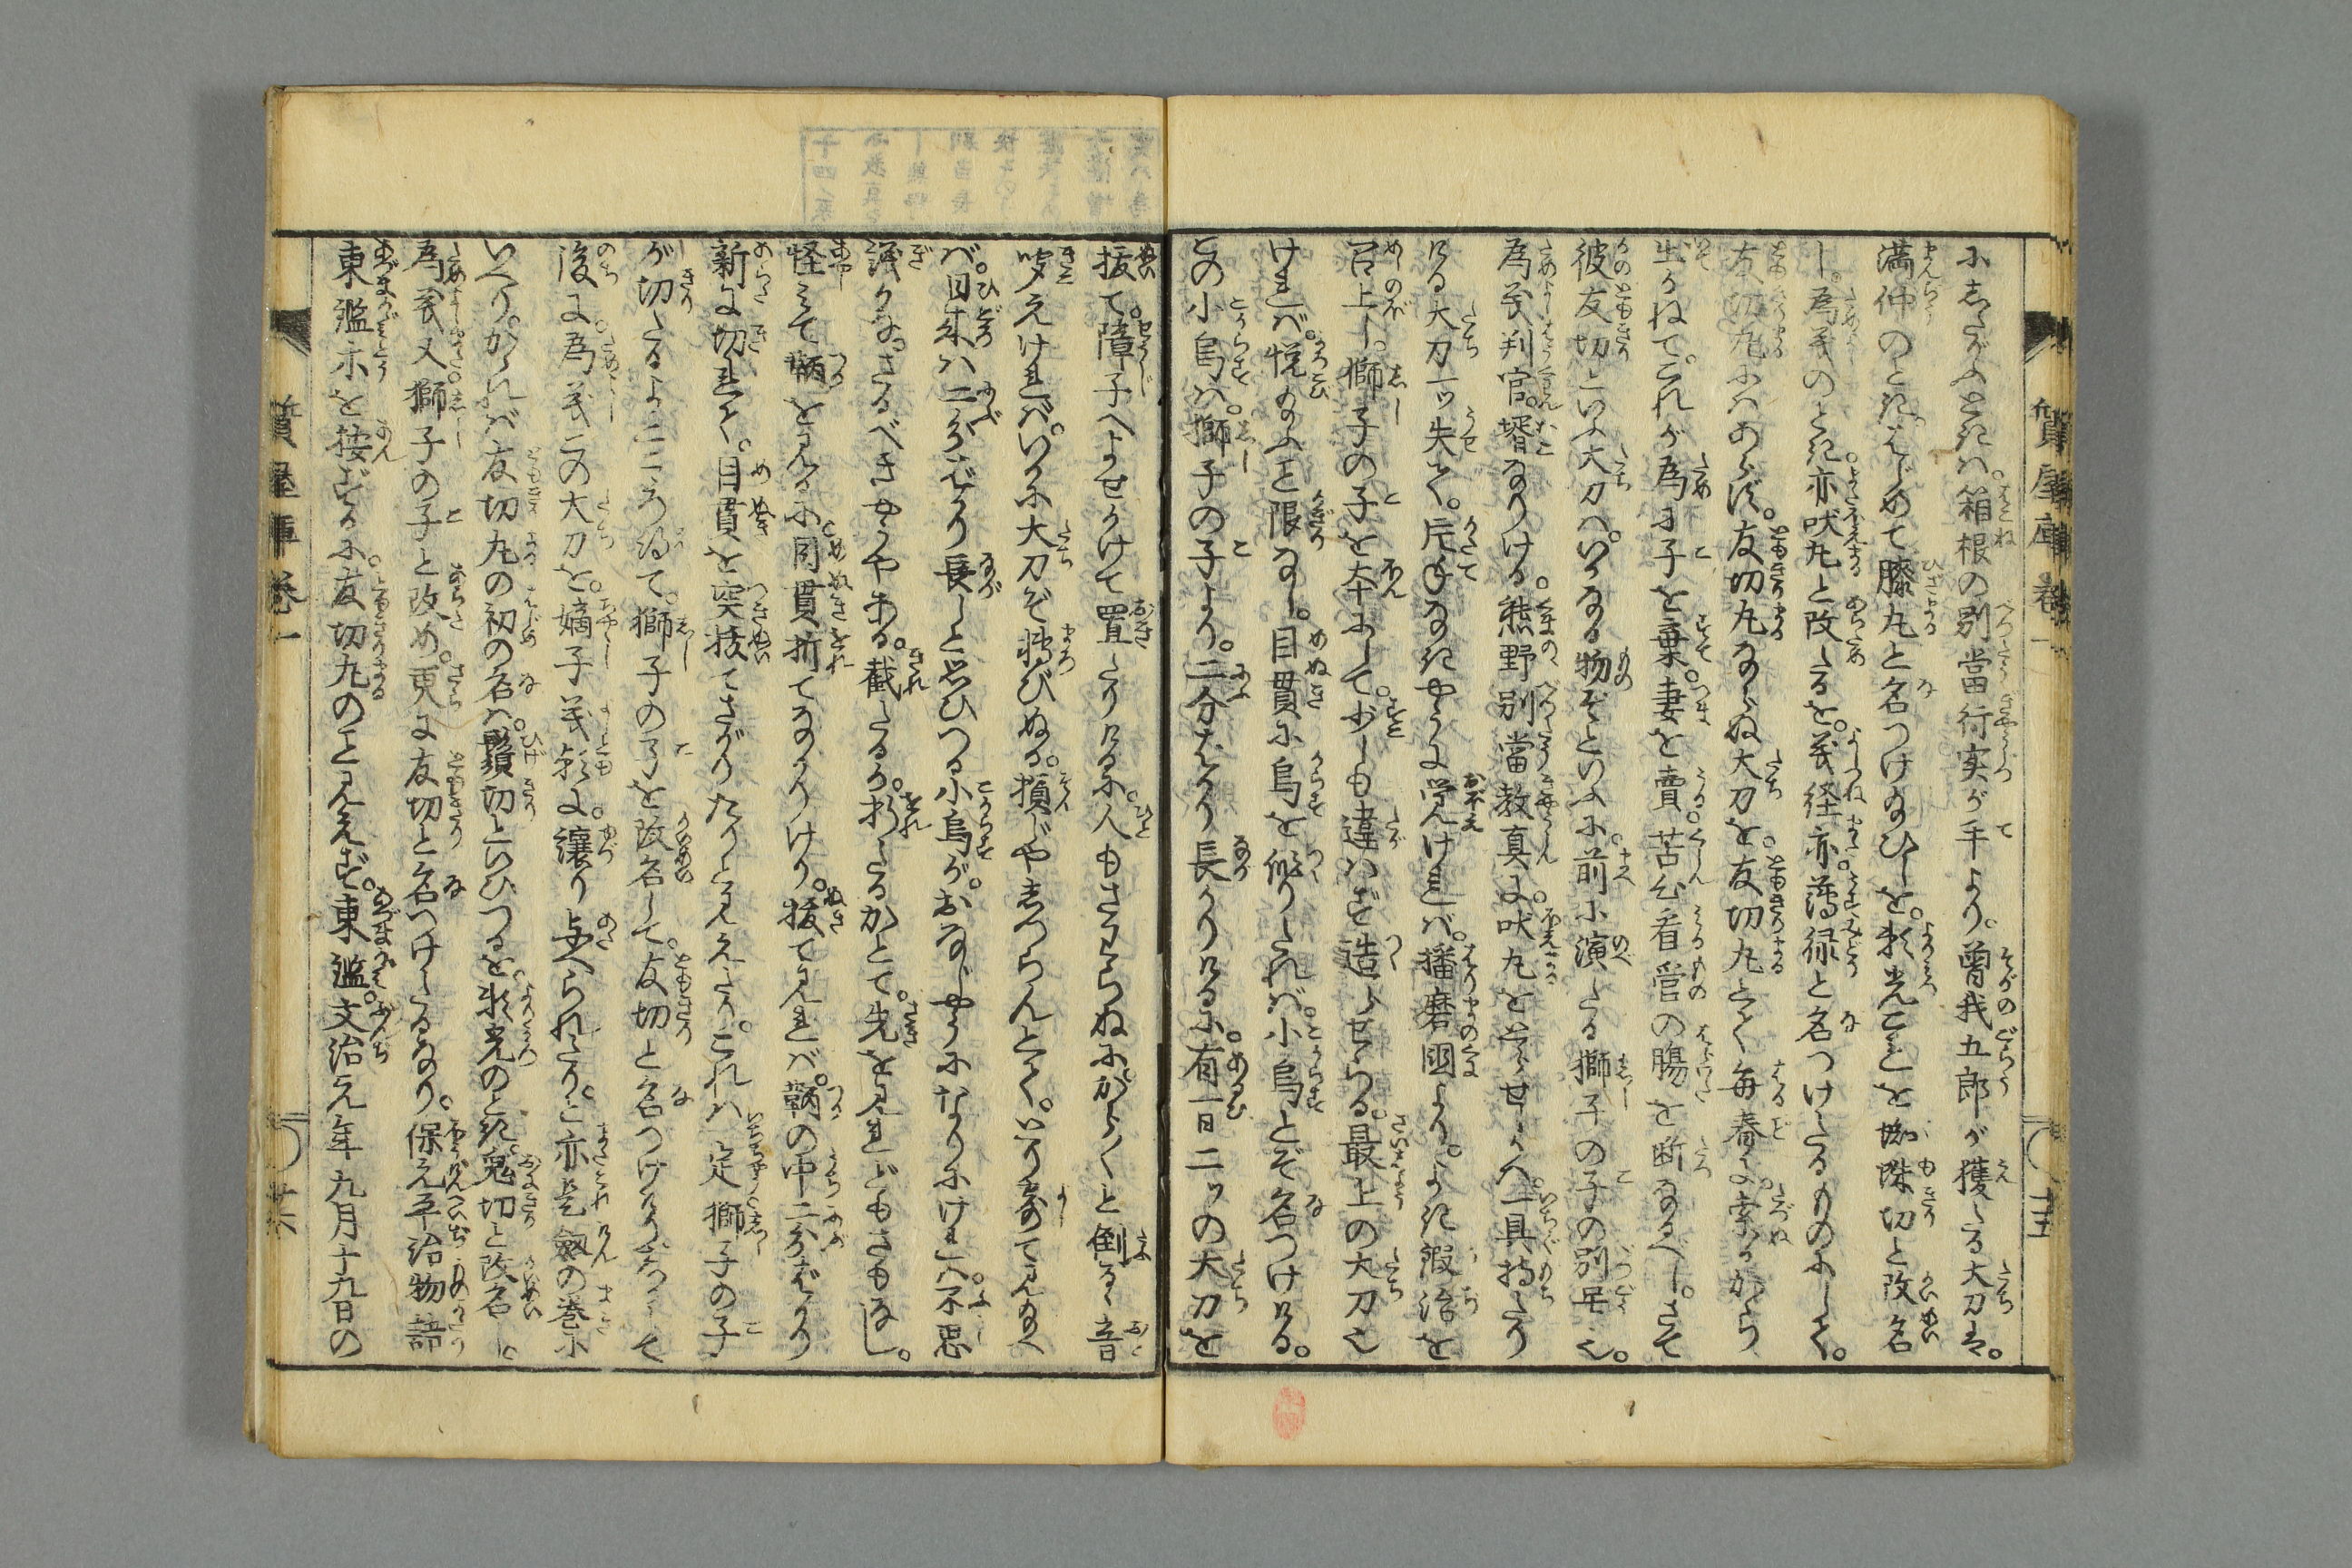 質屋庫 巻一
十五
にしたがふときは。箱根の別當行実が手より。曽我五郎が獲たる大刀は。
満仲のとき。はじめて膝丸と名つけ給ひしを。頼光これを蜘蛛切と改名
し。為義のとき。亦吠丸と改たるを。義経亦。薄緑と名つけたるものにして。
友切丸にはあらず。友切丸ならぬ大刀を。友切丸とて毎春に。索るからう
出かねて。これが為に子を棄。妻を賣。苦心看官の腸を断なるべし。さて
彼友切といふ大刀は。いかなる物ぞといふに。前に演たる獅子の子の別号也。
為義判官。壻なりける。熊野別當教真に。吠丸をとらせしかへ。一具持たり
ける大刀一ッ失て。片手なきやうに覚えければ。播磨國より。よき鍛治を
召上し。獅子の子を本にして。少しも違はず造らせらる。最上の大刀也
ければ。悦給ふこと限なし。目貫に烏を作りたれば。小烏とぞ名つけける。
この小烏は。獅子の子より。二分ばかり長かりけるに。有一日二ッの大刀を
抜て。障子へよせかけて置たりけるに。人もさはらぬに。からからと倒るゝ音
聞えければ。いかに大刀ぞ転びぬる。損じやしつらんとて。いり寄て見給へ
ば。日来は二分ばかり長しと思ひつる小烏が。おなじやうになりにければ。不思
議かな。さるべきやうやある。截たるか。折たるかとて。先を見れどもさもなし。
怪みて。鞆を見るに。目貫折てなかりけり。抜て見れば。鞆の中二分ばかり
新に切れて。目貫を突抜てさがりたりと見えたり。これは一定獅子の子
が切たるよとこゝろ得て。獅子の子を改名して。友切と名つけけり。かくて
後に。為義この大刀を。嫡子義朝に。譲り与へられたり。と亦是劔の巻に
いへり。かゝれば友切丸の初の名は。鬚切といひつるを。頼光のとき。鬼切と改名し。
為義又獅子の子と改め。更に友切と名つけしなり。保元平治物語
東鑑亦を按ずるに。友切丸のこと見えず。東鑑。文治元年九月十九日の
質屋庫 巻一